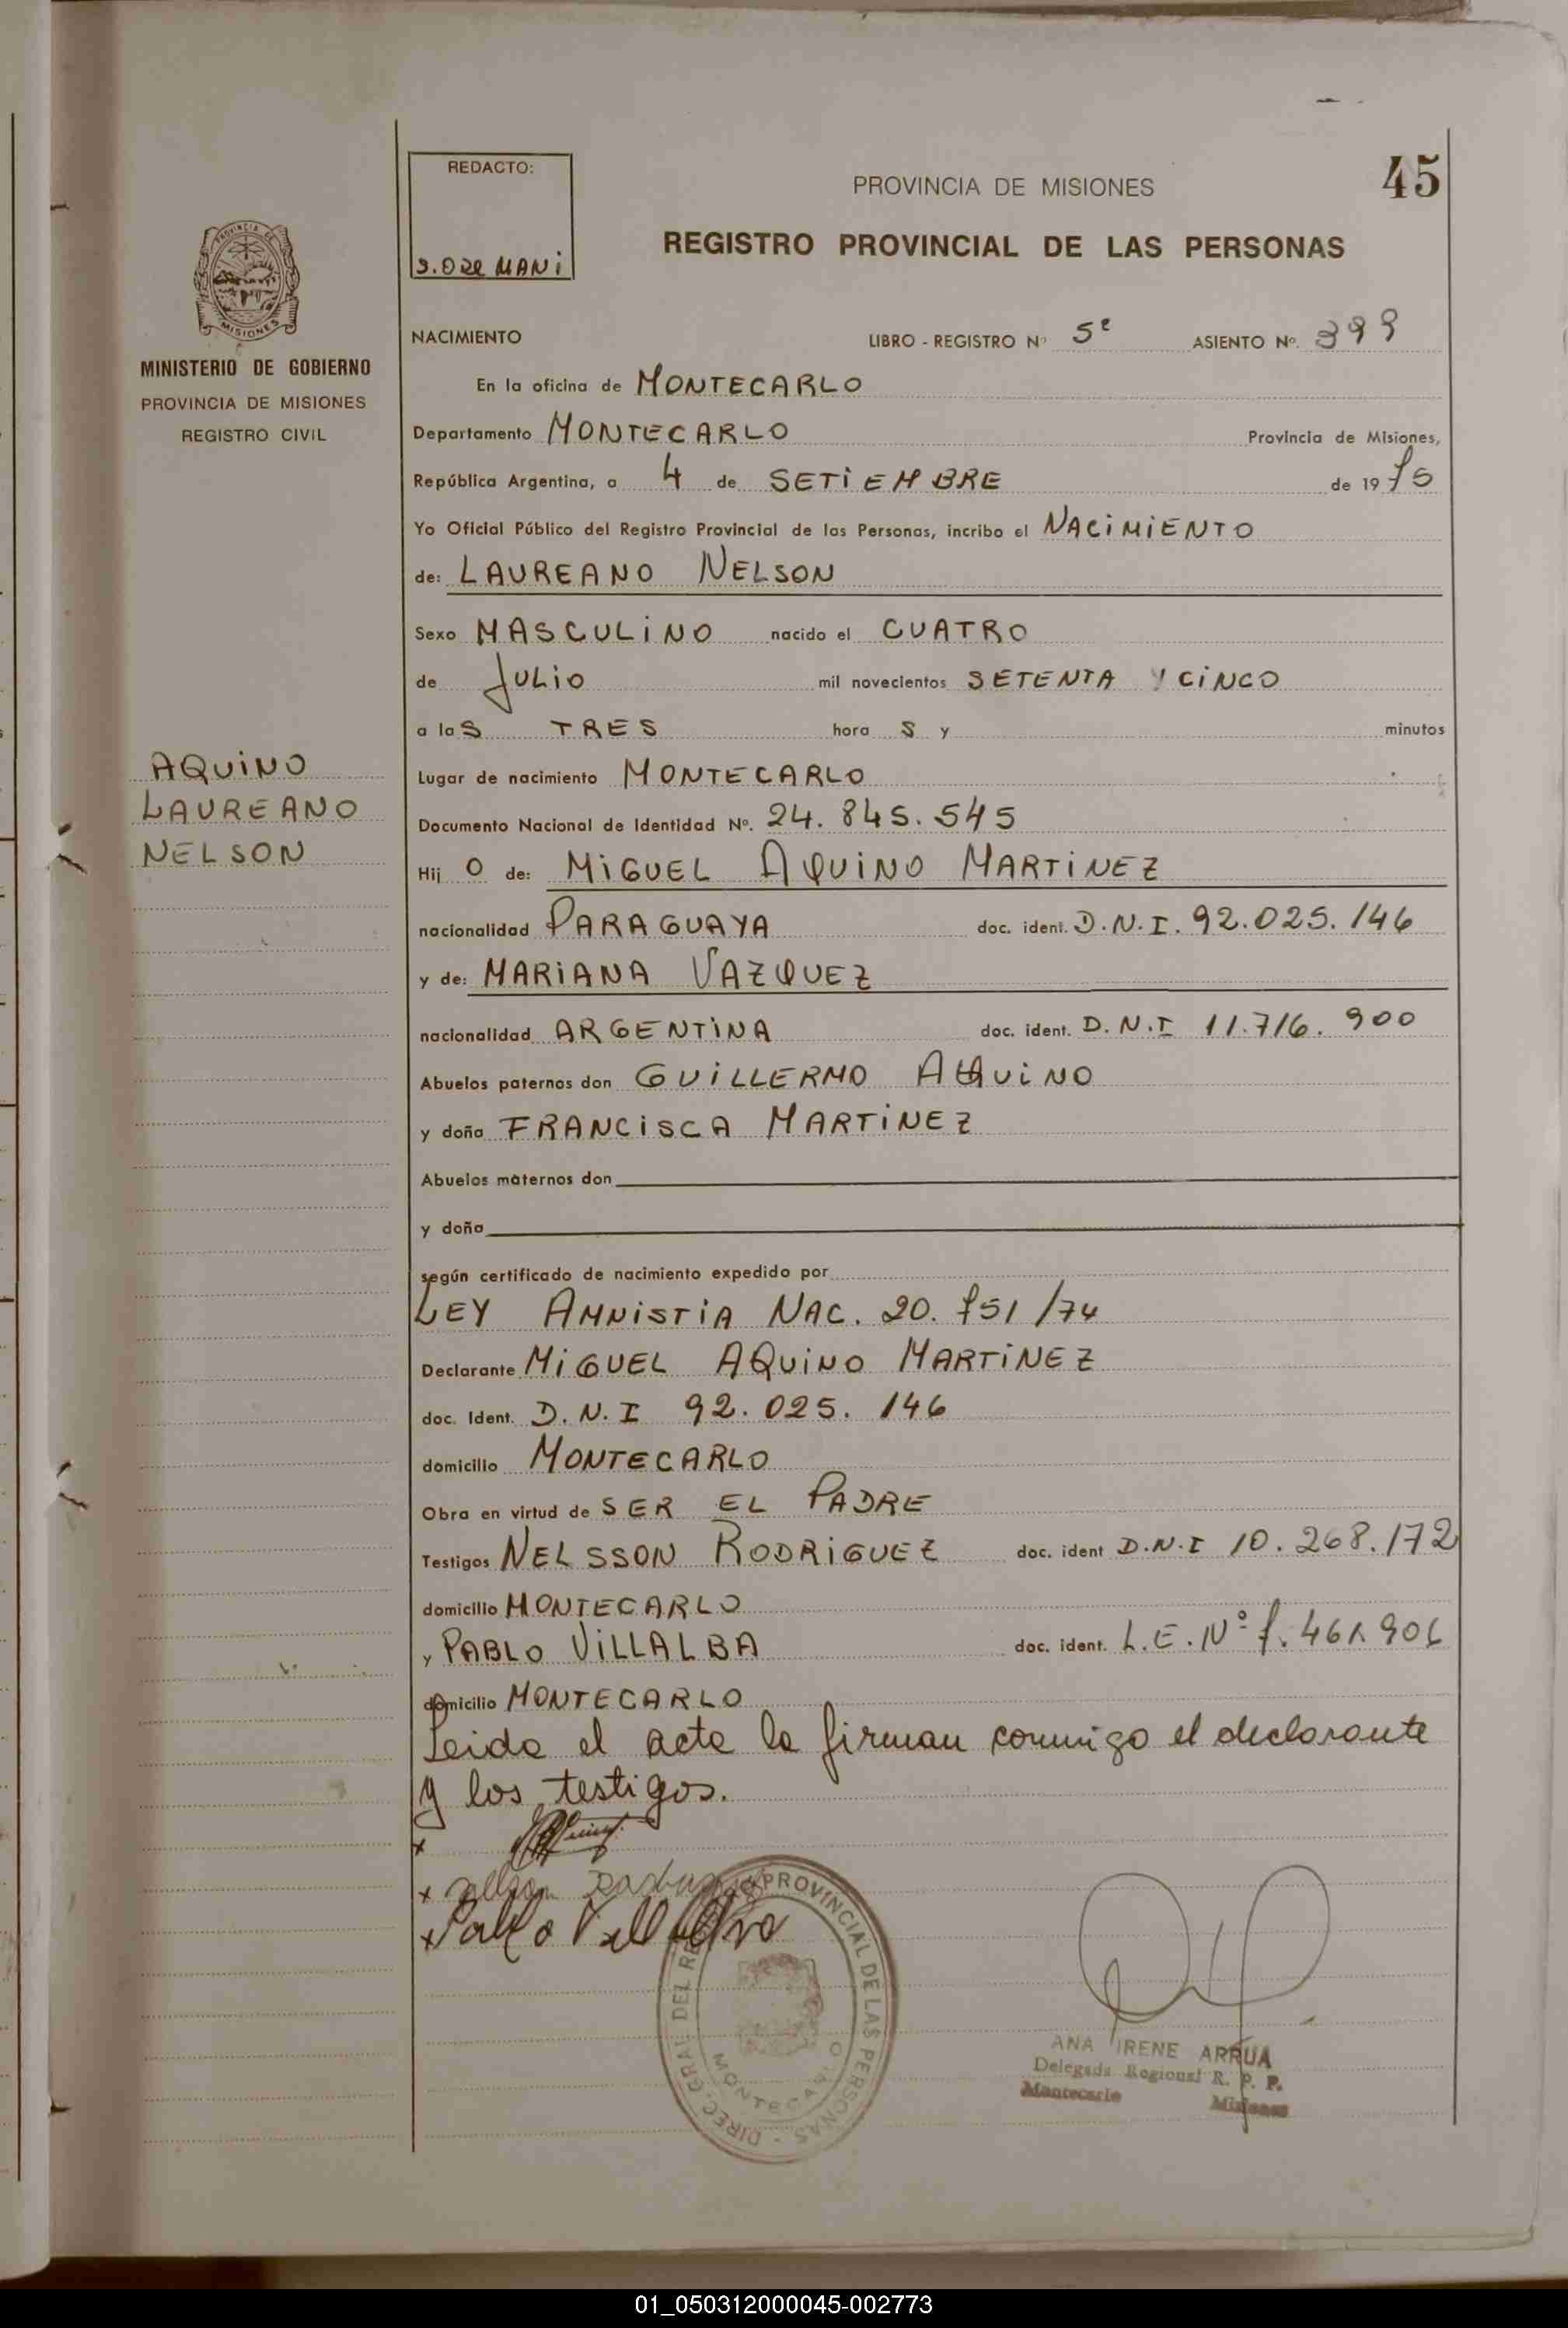 45
REDACTO:
PROVINCIA DE MISIONES
REGISTRO PROVINCIAL DE LAS PERSONAS
PROVINCIA DE
MISIONES
MINISTERIO DE GOBIERNO
PROVINCIA DE MISIONES
REGISTRO CIVIL
NACIMIENTO LIBRO - REGISTRO Nº 5º ASIENTO Nº. 399
En la oficina de MONTECARLO
Departamento MONTECARLO Provincia de Misiones,
República Argentina, a 4 de SETIEMBRE de 1975
Yo Oficial Público del Registro Provincial de las Personas, incribo el NACIMIENTO
de: LAUREANO NELSON
Sexo MASCULINO nacido el CUATRO
de JULIO mil novecientos SETENTA Y CINCO
a las TRES horas y minutos
AQUINO
LAUREANO
NELSON
Lugar de nacimiento MONTECARLO
Documento Nacional de Identidad Nº. 24.845.545
Hijo de: MIGUEL AQUINO MARTINEZ
nacionalidad PARAGUAYA doc. ident. D.N.I. 92.025.146
y de: MARIANA VAZQUEZ
nacionalidad ARGENTINA doc. ident. D.N.I 11.716.900
Abuelos paternos don GUILLERMO AQUINO
y doña FRANCISCA MARTINEZ
Abuelos maternos don
y doña
según certificado de nacimiento expedido por
LEY AMNISTIA NAC. 20.751/74
Declarante MIGUEL AQUINO MARTINEZ
doc. Ident. D.N.I 92.025.146
domicilio MONTECARLO
Obra en virtud de SER EL PADRE
Testigos NELSSON RODRIGUEZ doc. ident D.N.I 10.268.172
domicilio MONTECARLO
y PABLO VILLALBA doc. ident. L.E.Nº 7.461.906
domicilio MONTECARLO
Leida el acta la firman conmigo el declarante
y los testigos.
x
x
x Pablo Villalba
DIREC. GRAL. DEL REGISTRO PROVINCIAL DE LAS PERSONAS -
MONTECARLO
ANA IRENE ARRUA
Delegada Regional R. P. P.
Montecarlo Misiones
01_050312000045-002773